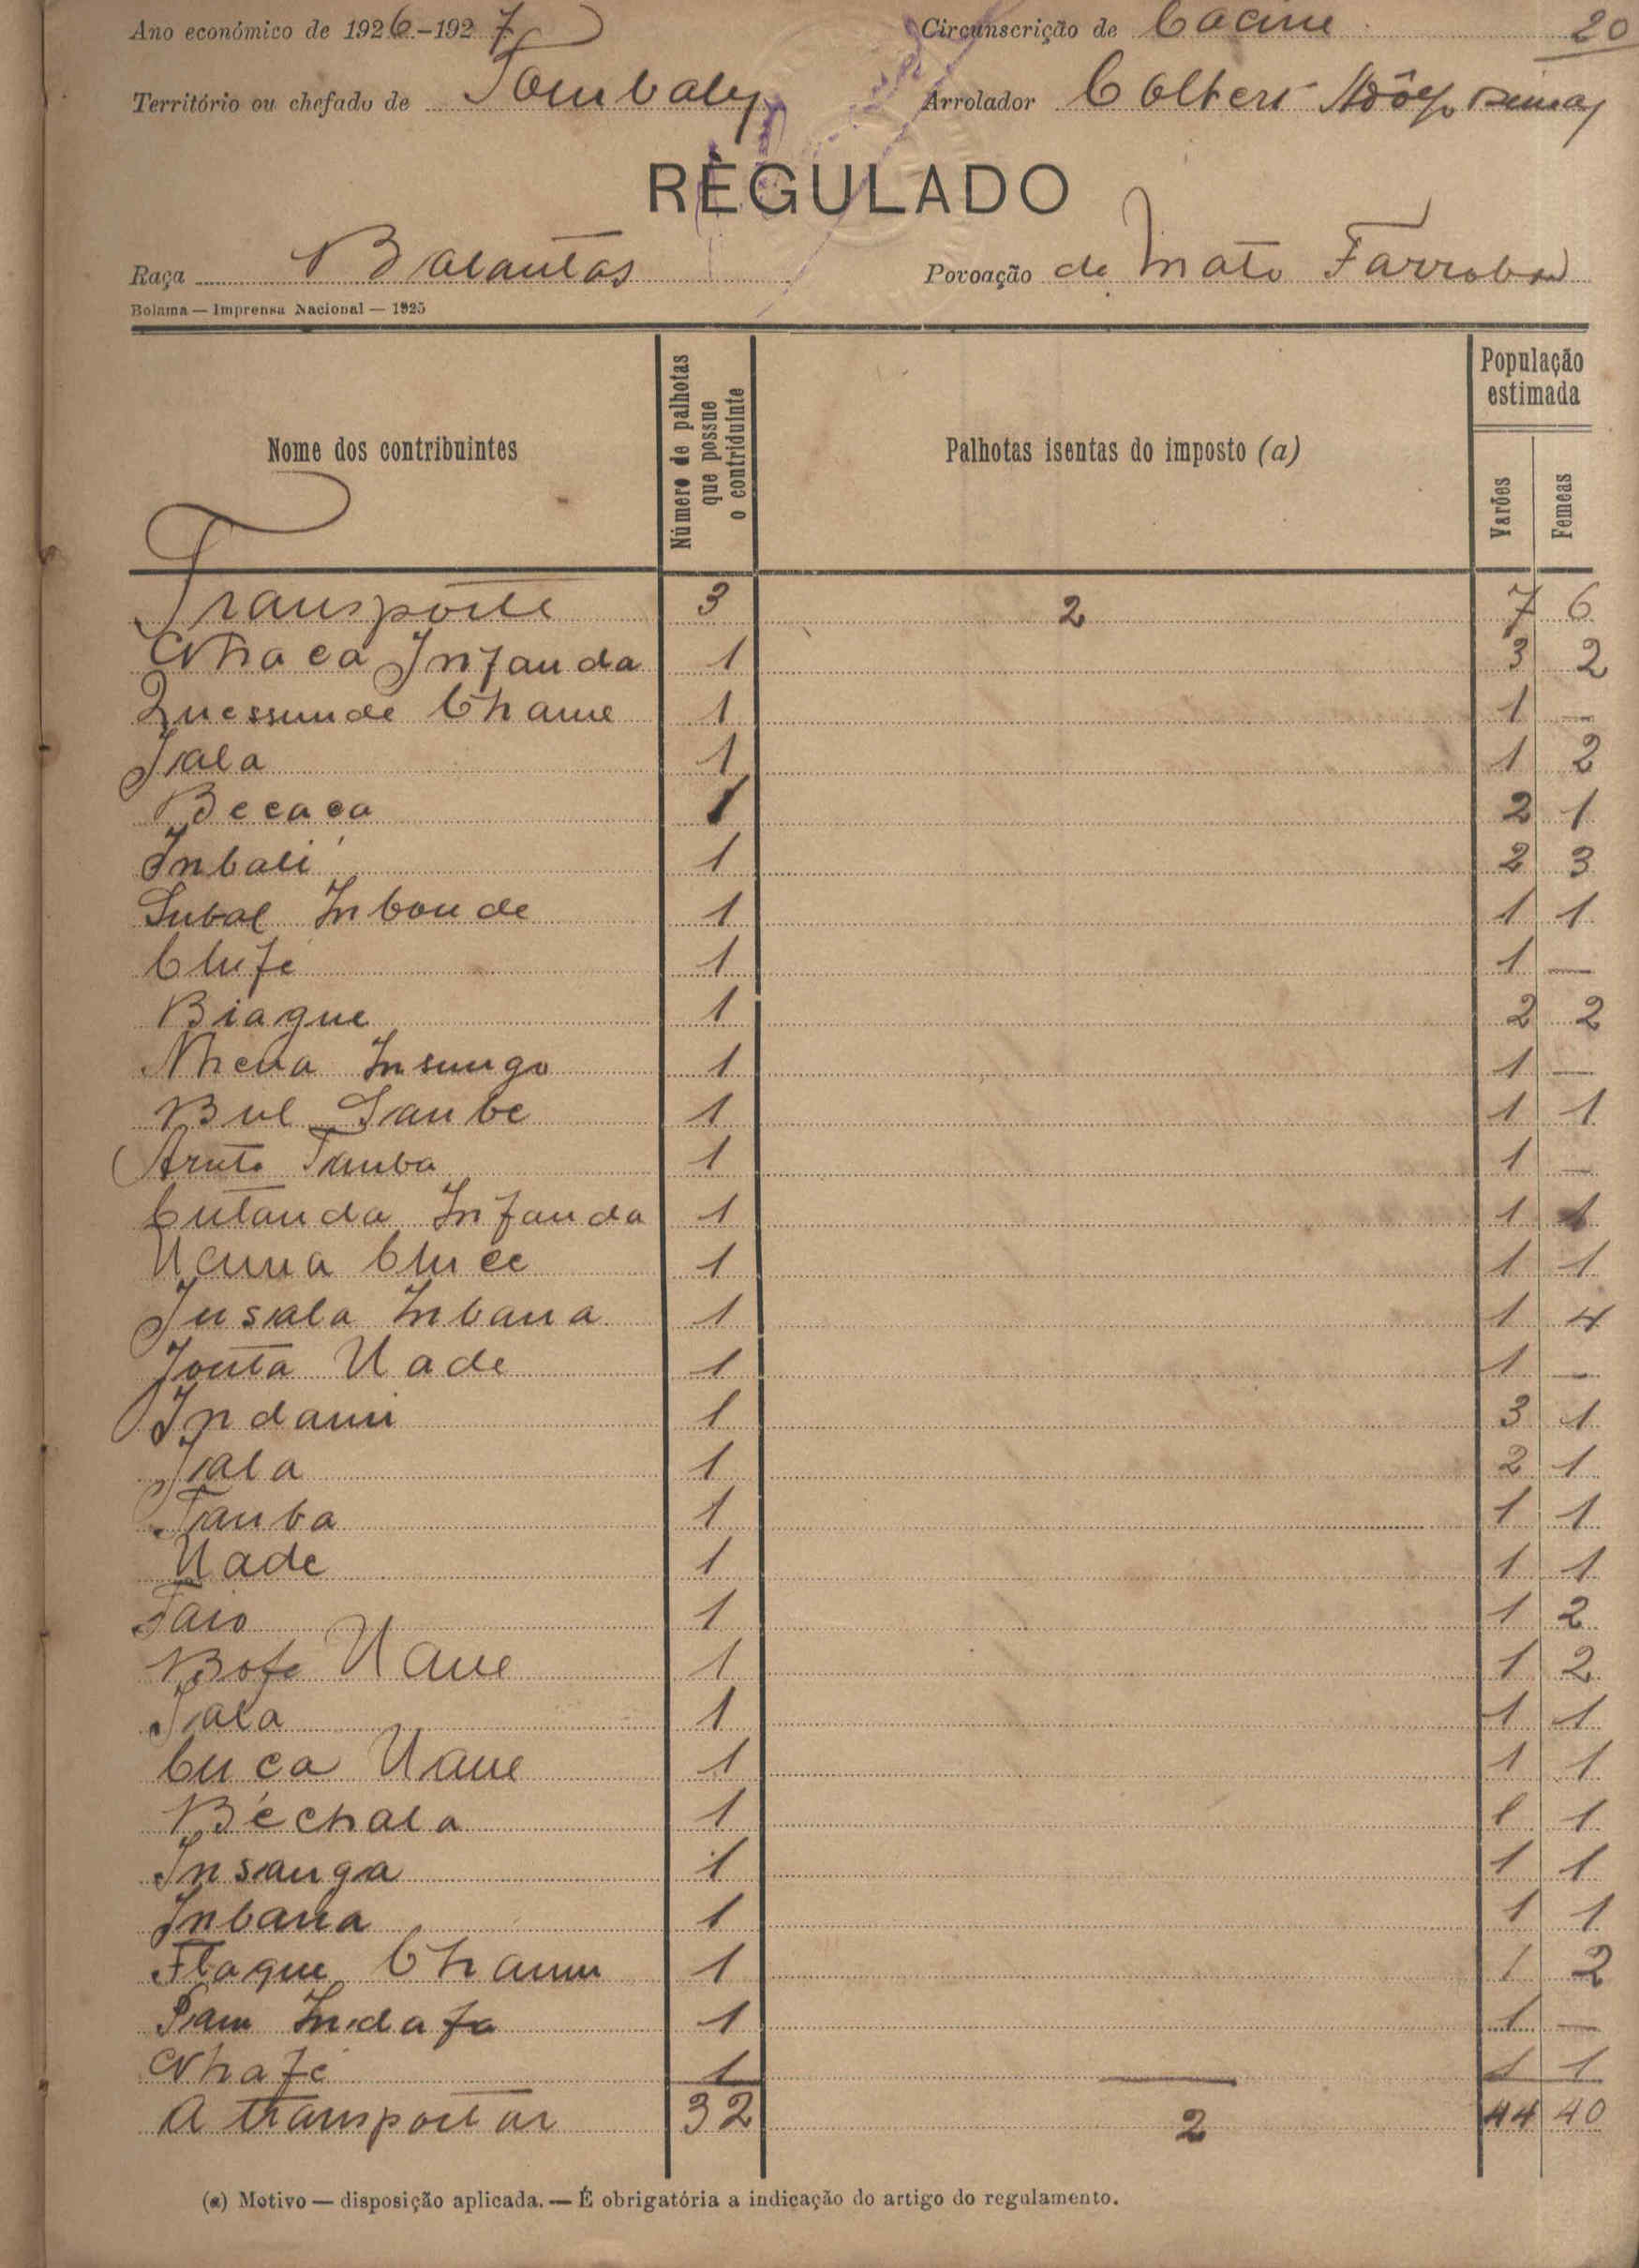 Ano económico de 1926-1927 Circunscrição de Cacine 20
Território ou chefado de Tombaly Arrolador Colbert
REGULADO
Raça Balantas Povoação de Mato Farroba
Bolama — Imprensa Nacional — 1925
Nome dos contribuintes Número de palhotas que possue o contriduinte Palhotas isentas do imposto (a) População estimada Varões Femeas
Transporte 3 2 7 6
Nhaca Infanda 1 3 2
Quessunde Chame 1 1 —
Iala 1 1 2
Becaca 1 2 1
Inbali 1 2 3
Subal Inbonde 1 1 1
Clufé 1 1 —
Biague 1 2 2
Nhena Insungo 1 1 —
Bul Sanbe 1 1 1
Aruto Tamba 1 1 —
Cutanda Infanda 1 1 1
Uanna Cluce 1 1 1
Insala Inbana 1 1 4
Jonta Uade 1 1 —
Indami 1 3 1
Iala 1 2 1
Tamba 1 1 1
Uade 1 1 1
Saio 1 1 2
Bofe Uane 1 1 2
Iala 1 1 1
Cuca Uane 1 1 1
Béchala 1 1 1
Insanga 1 1 1
Inbana 1 1 1
Flaque Chamu 1 1 2
Sam Indafa 1 1 —
Nhafé 1 1 1
A transportar 32 2 44 40
(a) Motivo — disposição aplicada. — É obrigatória a indicação do artigo do regulamento.